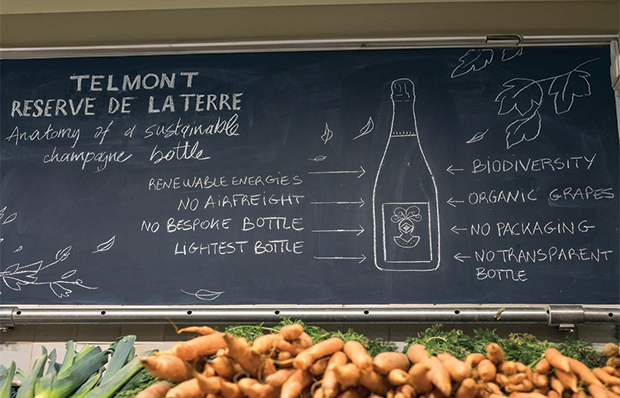 TELMONT
RESERVE DE LA TERRE
Anatomy of a sustainable
champagne bottle
RENEWABLE ENERGIES
NO AIRFREIGHT
NO BESPOKE BOTTLE
LIGHTEST BOTTLE
BIODIVERSITY
ORGANIC GRAPES
NO PACKAGING
NO TRANSPARENT
BOTTLE